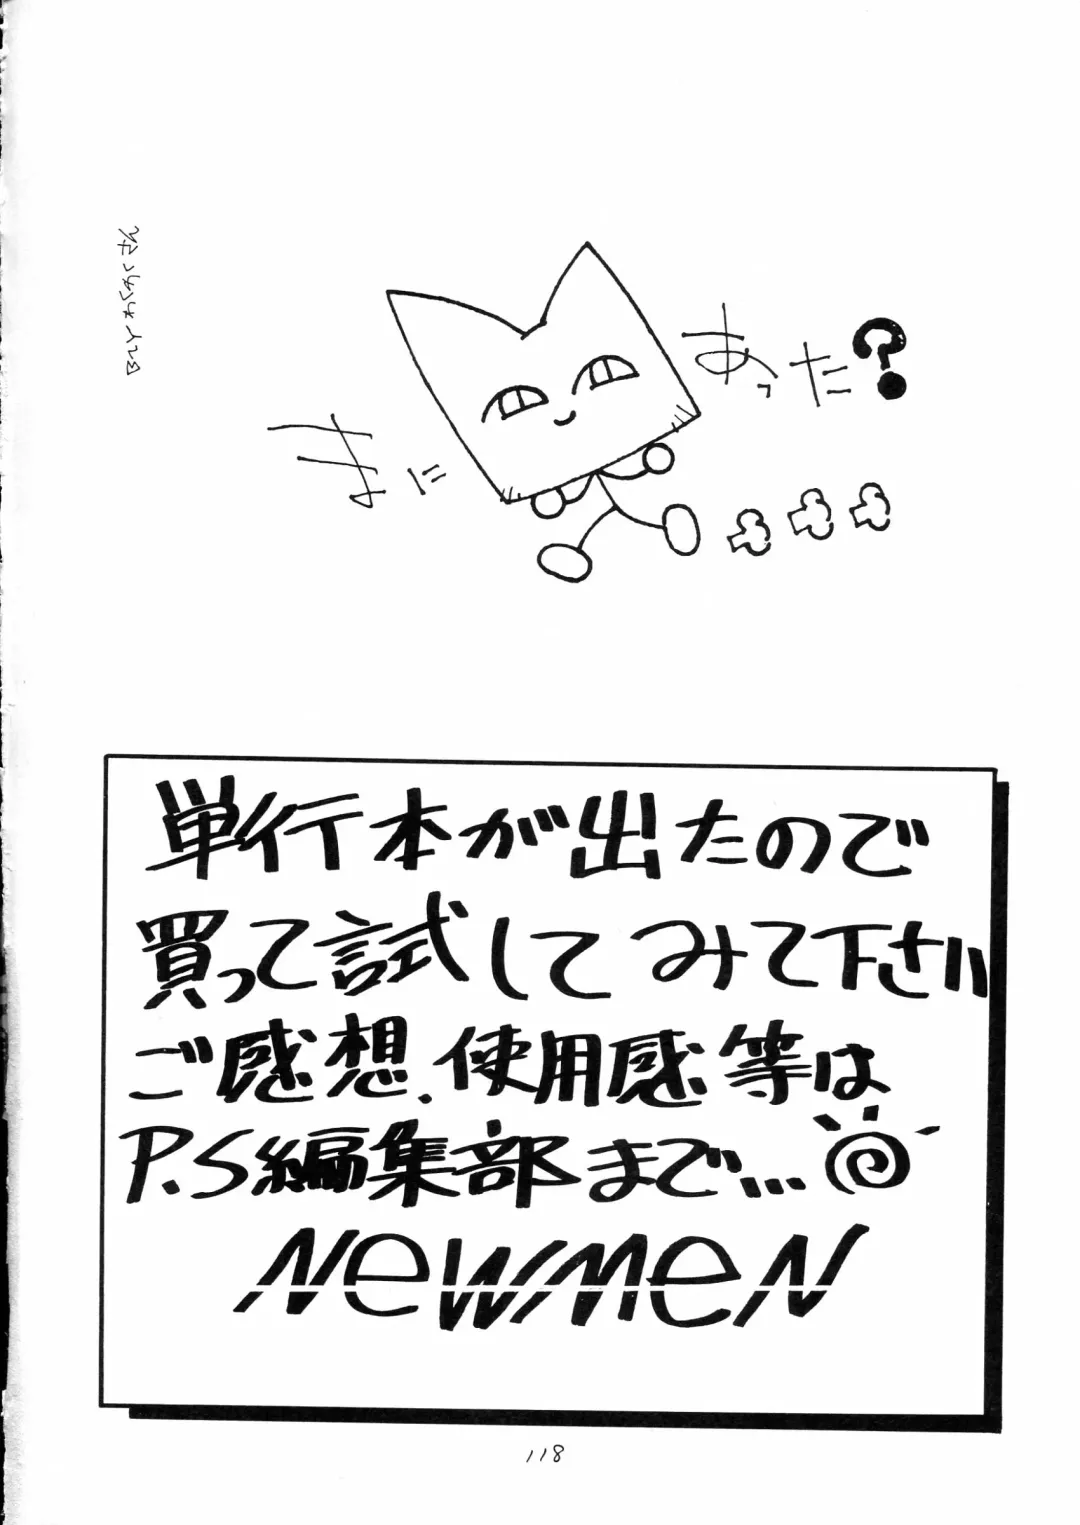 まにあった?
単行本が出たので
買って試してみて下さい
ご感想.使用感等は
P.S編集部まで...
NEWMEN
118